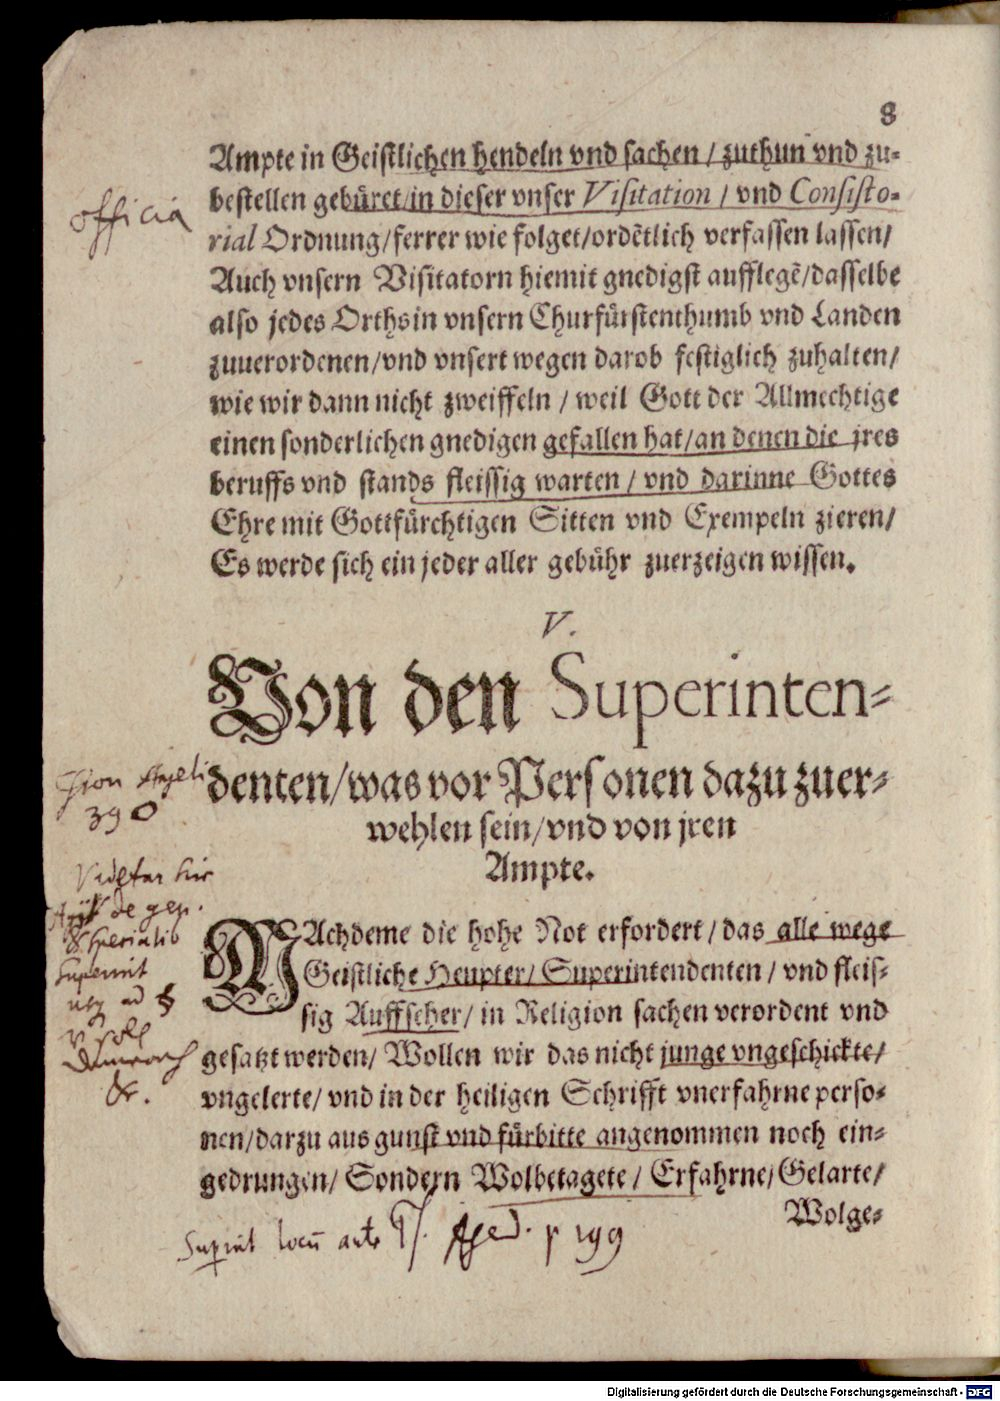 8
Ampte in Geistlichen hendeln vnd sachen / zuthun vnd zu-
bestellen gebüret/in dieser vnser Visitation / vnd Consisto-
officia
rial Ordnung/ferrer wie folget/ordẽtlich verfassen lassen/
Auch vnsern Visitatorn hiemit gnedigst aufflegẽ/dasselbe
also jedes Orths in vnsern Churfürstenthumb vnd Landen
zuuerordenen/vnd vnsert wegen darob festiglich zuhalten/
wie wir dann nicht zweiffeln / weil Gott der Allmechtige
einen sonderlichen gnedigen gefallen hat/an denen die jres
beruffs vnd stands fleissig warten / vnd darinne Gottes
Ehre mit Gottfürchtigen Sitten vnd Exempeln zieren/
Es werde sich ein jeder aller gebühr zuerzeigen wissen.
V.
Von den Superinten-
denten/was vor Personen dazu zuer-
390
wehlen sein/vnd von jren
Ampte.
NAchdeme die hohe Not erfordert/das alle wege
Geistliche Heupter/ Superintendenten / vnd fleis-
sig Auffseher/ in Religion sachen verordent vnd
gesatzt werden/ Wollen wir das nicht junge vngeschickte/
vngelerte/ vnd in der heiligen Schrifft vnerfahrne perso-
nen/darzu aus gunst vnd fürbitte angenommen noch ein-
gedrungen/ Sondern Wolbetagete / Erfahrne/ Gelarte/
Wolge-
199
Digitalisierung gefördert durch die Deutsche Forschungsgemeinschaft - DFG